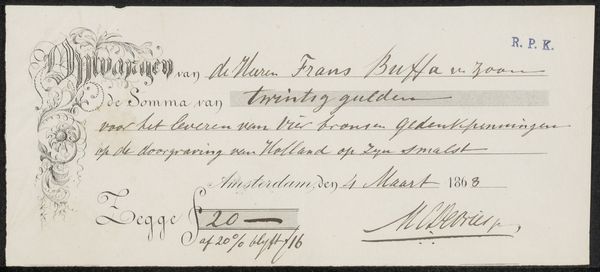 R. P. K.
Ontvangen van de Heeren Frans Buffa en Zoon
de Somma van twintig gulden
voor het leveren van vier bronsen Gedenkpenningen
op de doorgraving van Holland op zyn smalst
Amsterdam, den 4 Maart 1863
Zegge ƒ 20 —
af 20% blyft ƒ16
M C De Vries jr,